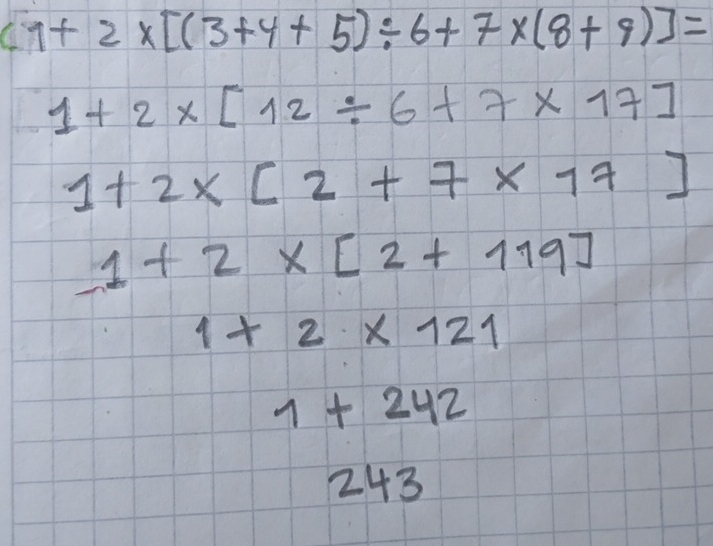 1+2×[(3+4+5)÷6+7×(8+9)]=
1+2×[12÷6+7×17]
1+2×[2+7×17]
1+2×[2+119]
1+2×121
1+242
243